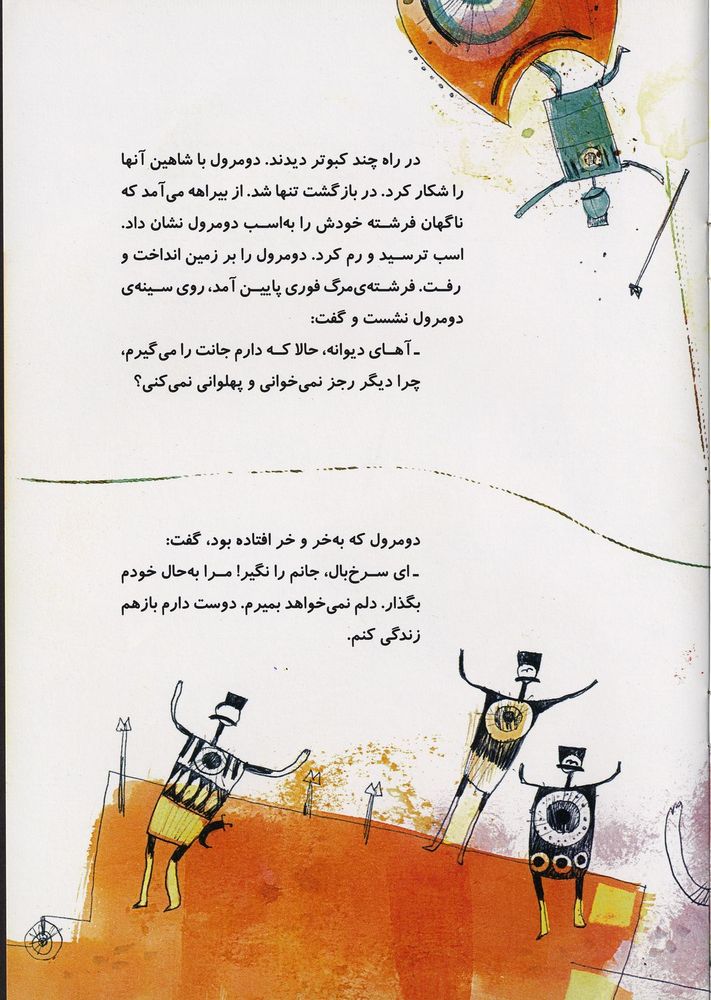 در راه چند کبوتر دیدند. دومرول با شاهین آنها
را شکار کرد. در بازگشت تنها شد. از بیراهه می‌آمد که
ناگهان فرشته خودش را به‌اسب دومرول نشان داد.
اسب ترسید و رم کرد. دومرول را بر زمین انداخت و
رفت. فرشته‌ی‌مرگ فوری پایین آمد، روی سینه‌ی
دومرول نشست و گفت:
ـ آهای دیوانه، حالا که دارم جانت را می‌گیرم،
چرا دیگر رجز نمی‌خوانی و پهلوانی نمی‌کنی؟
دومرول که به‌خر و خر افتاده بود، گفت:
ـ ای سرخ‌بال، جانم را نگیر! مرا به‌حال خودم
بگذار. دلم نمی‌خواهد بمیرم. دوست دارم بازهم
زندگی کنم.